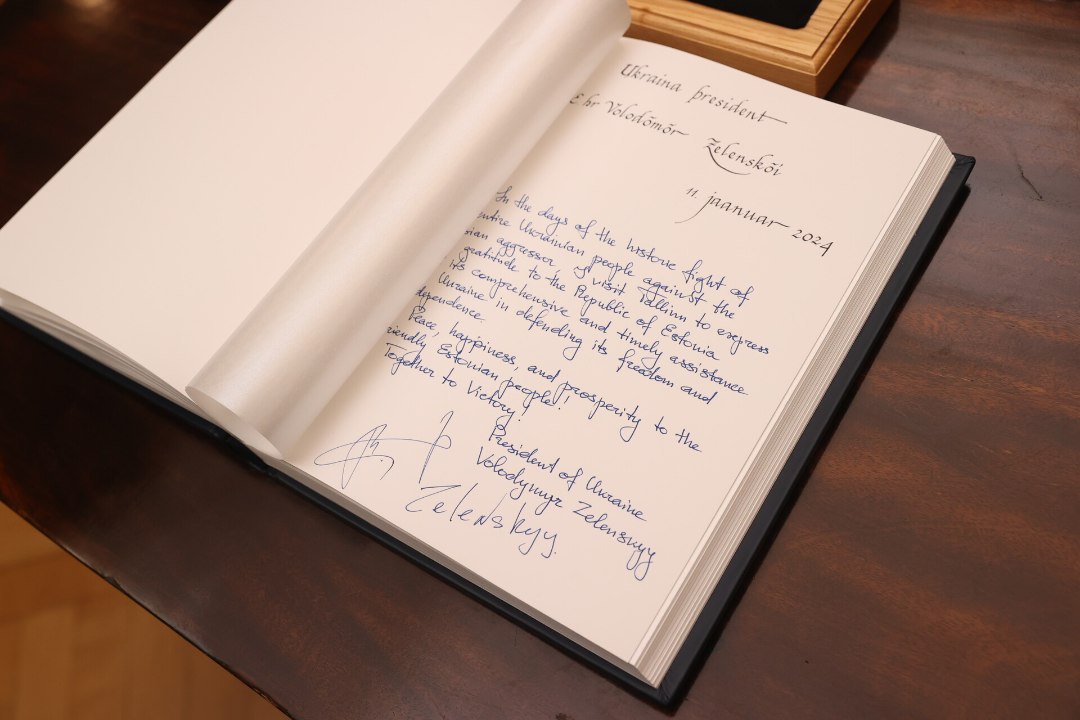 Ukraina president
E hr Volodõmõr Zelenskõi
11. jaanuar 2024
In the days of the historic fight of
entire Ukrainian people against the
sian aggressor y visit Tallinn to express
gratitude to the Republic of Estonia
its comprehensive and timely assistance
Ukraine in defending its freedom and
dependence.
Peace, happiness, and prosperity to the
riendly Estonian people!
Together to Victory!
President of Ukraine
Volodymyr Zelenskyy
Zelenskyy.